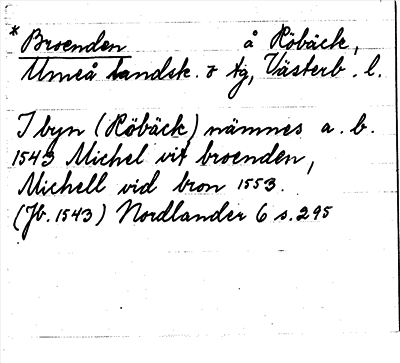 * Broenden å Röbäck,
Umeå landsk. o tg, Västerb. l.
I byn (Röbäck) nämnes a. b.
1543 Michel vit broenden,
Michell vid bron 1553.
(Jb. 1543) Nordlander 6 s. 295